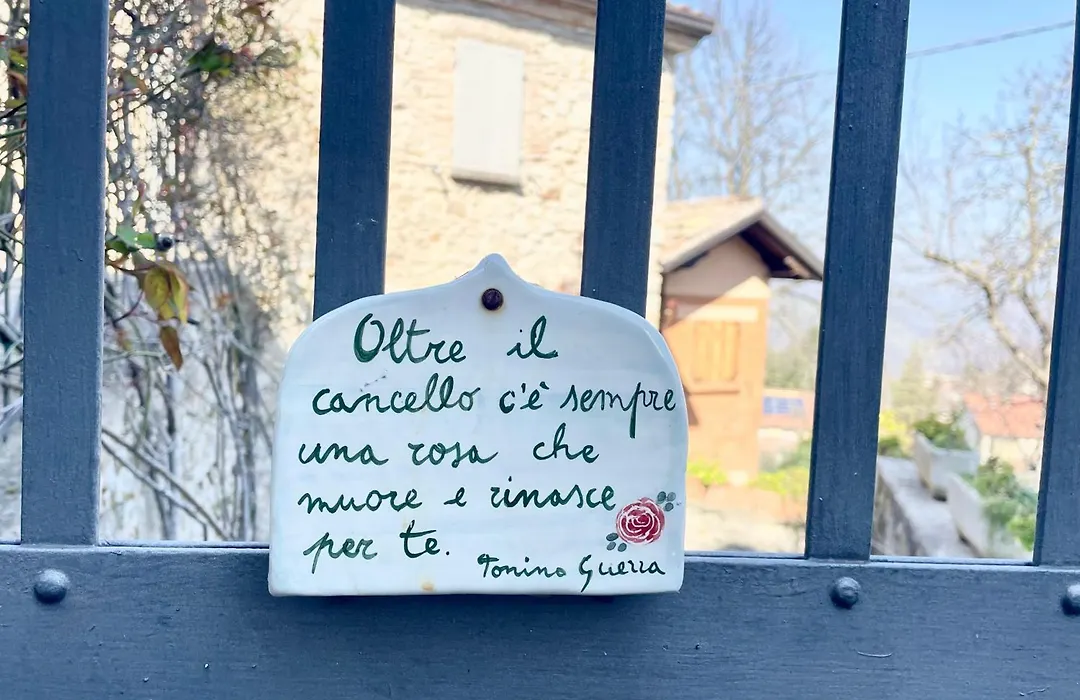 Oltre il
cancello c'è sempre
una rosa che
muore e rinasce
per te.
Tonino Guerra